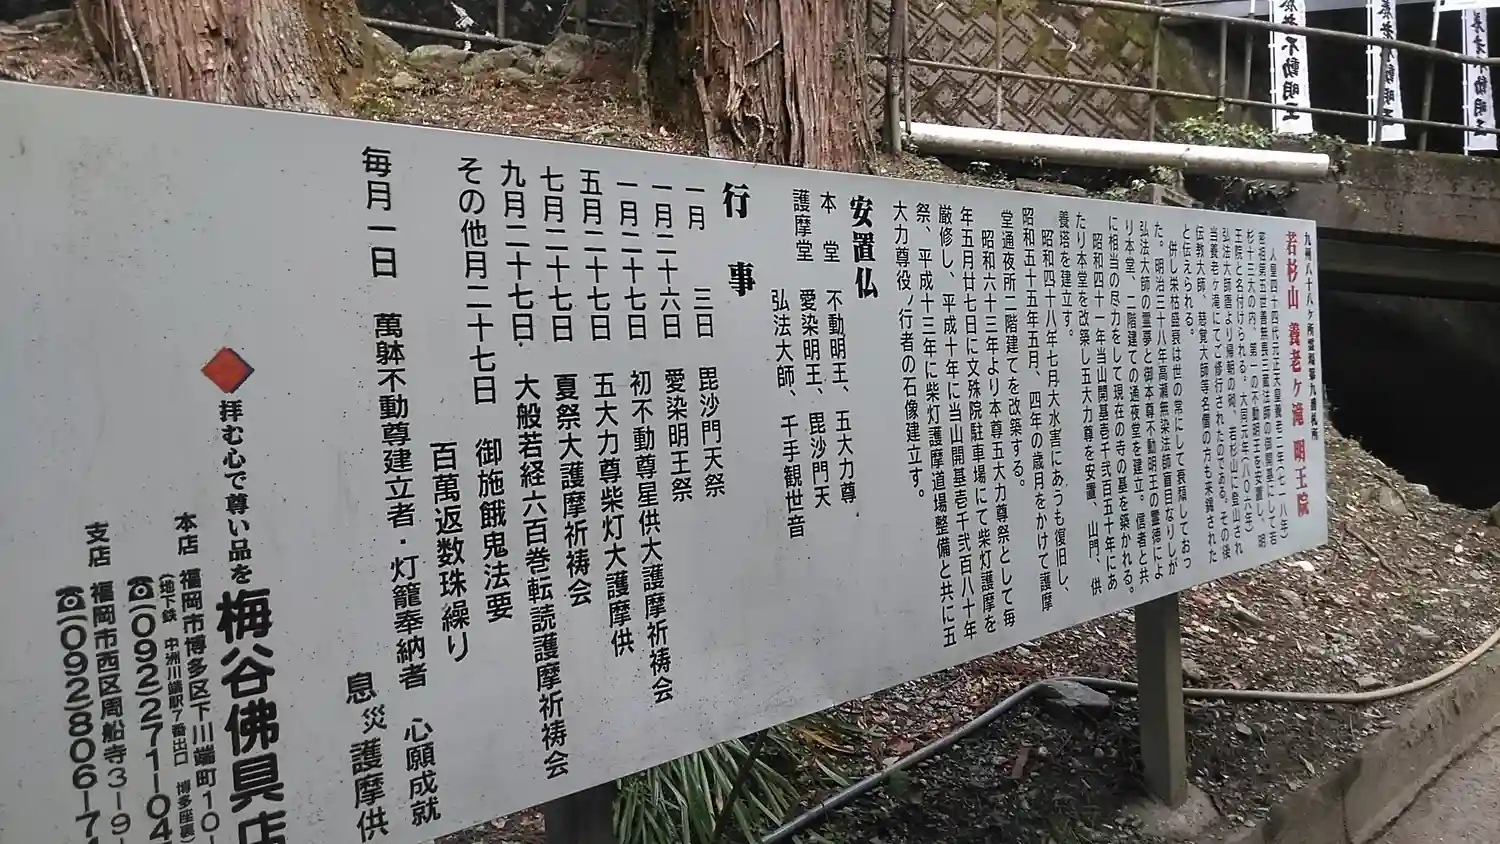 九州八十八ケ所霊場第九番札所
若杉山 養老ケ滝 明王院
人皇四十四代元正天皇養老二年(七一八年)
善無畏三蔵法師の御開基にして若
杉十三大の内、第一の不動明王を安置し、明
王院と名付けられる。大同元年(八〇六年)
弘法大師唐より帰朝の砌、若杉山に登山され
当養老ケ滝にてご修行されたのである。その後
伝教大師、慈覚大師等名僧の方も来錫された
と伝えられる。
併し栄枯盛衰は世の常にして衰頽しておっ
た。明治三十八年高瀬無染法師盲目なりしが
弘法大師の霊夢と御本尊不動明王の霊徳によ
り本堂、二階建ての通夜堂を建立。信者と共
に相当の尽力をして現在の寺の基を築かれる。
昭和四十一年当山開基壱千弐百五十年にあ
たり本堂を改築し五大力尊を安置、山門、供
養塔を建立す。
昭和四十八年七月大水害にあうも復旧し、
昭和五十五年五月、四年の歳月をかけて護摩
堂通夜所二階建てを改築する。
昭和六十三年より本尊五大力尊祭として毎
年五月廿七日に文殊院駐車場にて柴灯護摩を
厳修し、平成十年に当山開基壱千弐百八十年
祭、平成十三年に柴灯護摩道場整備と共に五
大力尊役ノ行者の石像建立す。
安置仏
本堂 不動明王、五大力尊
護摩堂 愛染明王、毘沙門天
弘法大師、千手観世音
行事
一月 三日 毘沙門天祭
一月二十六日 愛染明王祭
一月二十七日 初不動尊星供大護摩祈祷会
五月二十七日 五大力尊柴灯大護摩供
七月二十七日 夏祭大護摩祈祷会
九月二十七日 大般若経六百巻転読護摩祈祷会
その他月二十七日 御施餓鬼法要
百萬返数珠繰り
毎月一日 萬躰不動尊建立者・灯籠奉納者 心願成就
息災護摩供
拝む心で尊い品を 梅谷佛具店
本店 福岡市博多区下川端町10-
(地下鉄 中洲川端駅7番出口 博多座裏)
☎(092)271-04
支店 福岡市西区周船寺3-9-
☎(092)806-7
不動明王
不動明王
不動明王